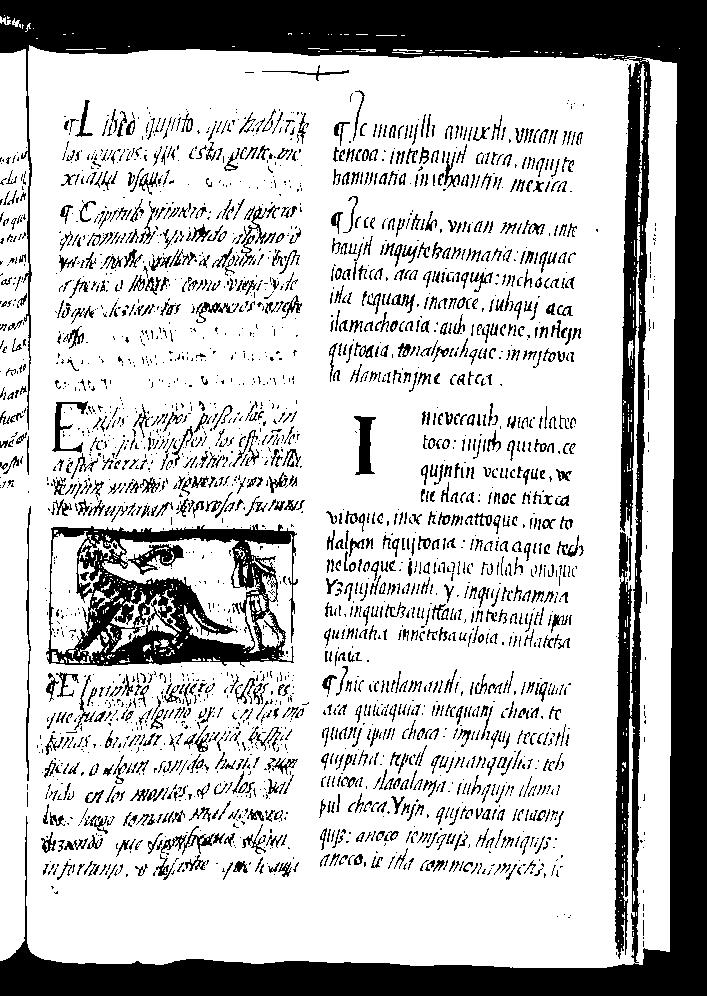 ¶ Libro quinto, que habla de
los agueros: que esta gente me
xicana vsaua.
¶ Capitulo primero: del aguero
que tomauan quando alguno oya
de noche, aullar a alguna besti
a fiera: o llorar como vieja: y de
lo que dezian los agoreros en este
caso.
En los tiempos passados, an
tes que viniessen los españoles
a esta tierra: los naturales della
tenian muchos agueros: por don
de adeuinauan las cosas futuras.
¶ El primero aguero destos, es:
que quando alguno oya en las mo
tañas, bramar a alguna bestia
fiera, o algun sonido, hazia zum
bido en los montes, o en los val
les: luego tomaua mal aguero:
diziendo que significaua algun
infortunjo, o desastre que le auja
¶ Jc macujlli amuxtli, vncan mo
teneoa: in tetzaujtl catca, inqujte
tzammatia in iehoantin mexica.
¶ Jc ce capitulo, vncan mitoa, in te
tzaujtl inqujtetzammatia: iniquac
ioaltica, aca quicaquja: inchocaia
itla tequanj, inanoce, iuhquj aca
ilamachocaia: auh iequene, in tlejn
qujtoaia, tonalpouhque: in mjtova
ia tlamatinjme catca.
In ievecauh, in oc tlateo
toco: iniuh quitoa, ce
qujntin veuetque, ve
ue tlaca: in oc titixca
vitoque, in oc titomattoque, in oc to
tlalpan tiqujtoaia: in aiaaque tech
nelotoque: in aiaque totlah onoque
Yzqujtlamantli. y. inqujtetzamma
tia, inquitetzaujttaia, in tetzaujtl ipan
quimatia in netetzaujloia, in tlatetza
ujaia.
¶ Jnic centlamantli, iehoatl, iniquac
aca quicaquia: in tequanj choca, te
quanj ipan choca: injuhquj tecciztli
qujpitza: tepetl qujnanqujlia: teh
cuicoa, tlaoalanja: iuhqujn ilama
pul choca. Ynjn, qujtovaia ie iaomj
qujz: anoço ie mjqujz, tlalmiqujz:
anoço, ie itla commonamjctiz, ie